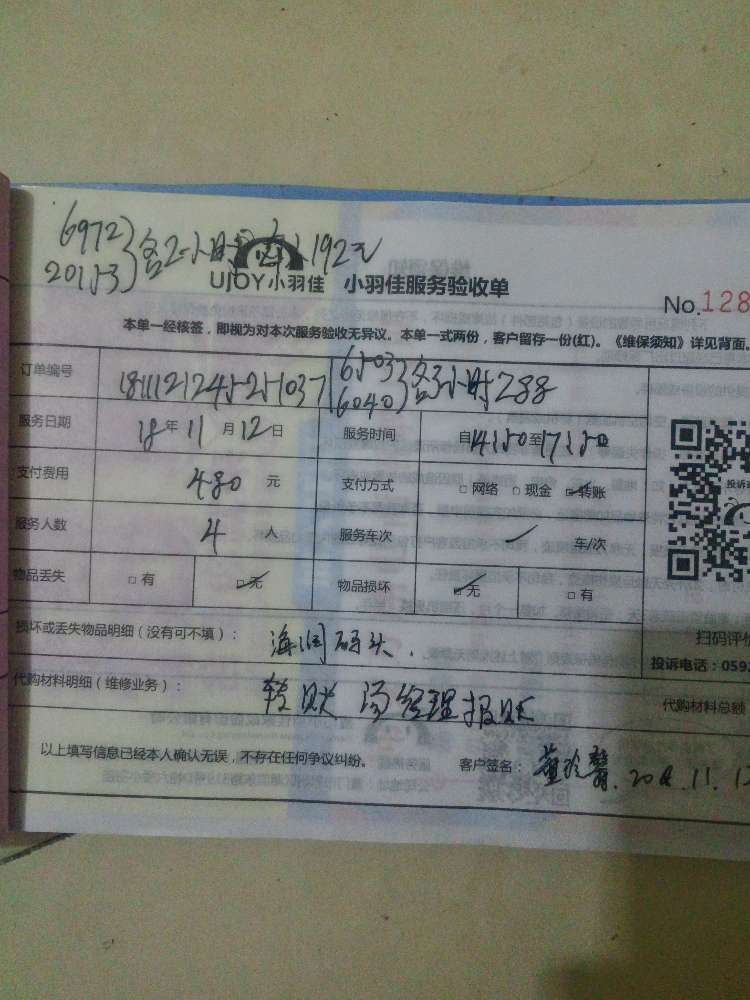 6972
20153 各2小时 192元
UJOY小羽佳 小羽佳服务验收单
No.128
本单一经核签，即视为对本次服务验收无异议。本单一式两份，客户留存一份(红)。《维保须知》详见背面。
订单编号 1811121245251037 6503 6040 各3小时288
服务日期 18年11月12日 服务时间 自14:50至17:50
支付费用 480元 支付方式 □网络 □现金 □转账
服务人数 4人 服务车次 车/次
物品丢失 □有 □无 物品损坏 □无 □有
损坏或丢失物品明细（没有可不填）： 海润码头.
扫码评价
投诉电话：0592
代购材料明细（维修业务）： 转账 汤经理报账
代购材料总额
以上填写信息已经本人确认无误，不存在任何争议纠纷。
客户签名： 2018.11.1
投诉